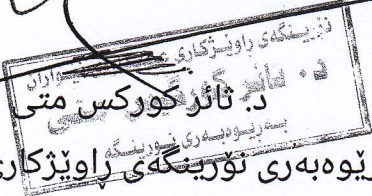 نۆرینگەی راوێژکاری
د. ثائر گورگیس متی
بەرێوەبەری نۆرینگە
د. ثائر گورکس متی
رێوەبەری نۆرینگەی ڕاوێژکاری